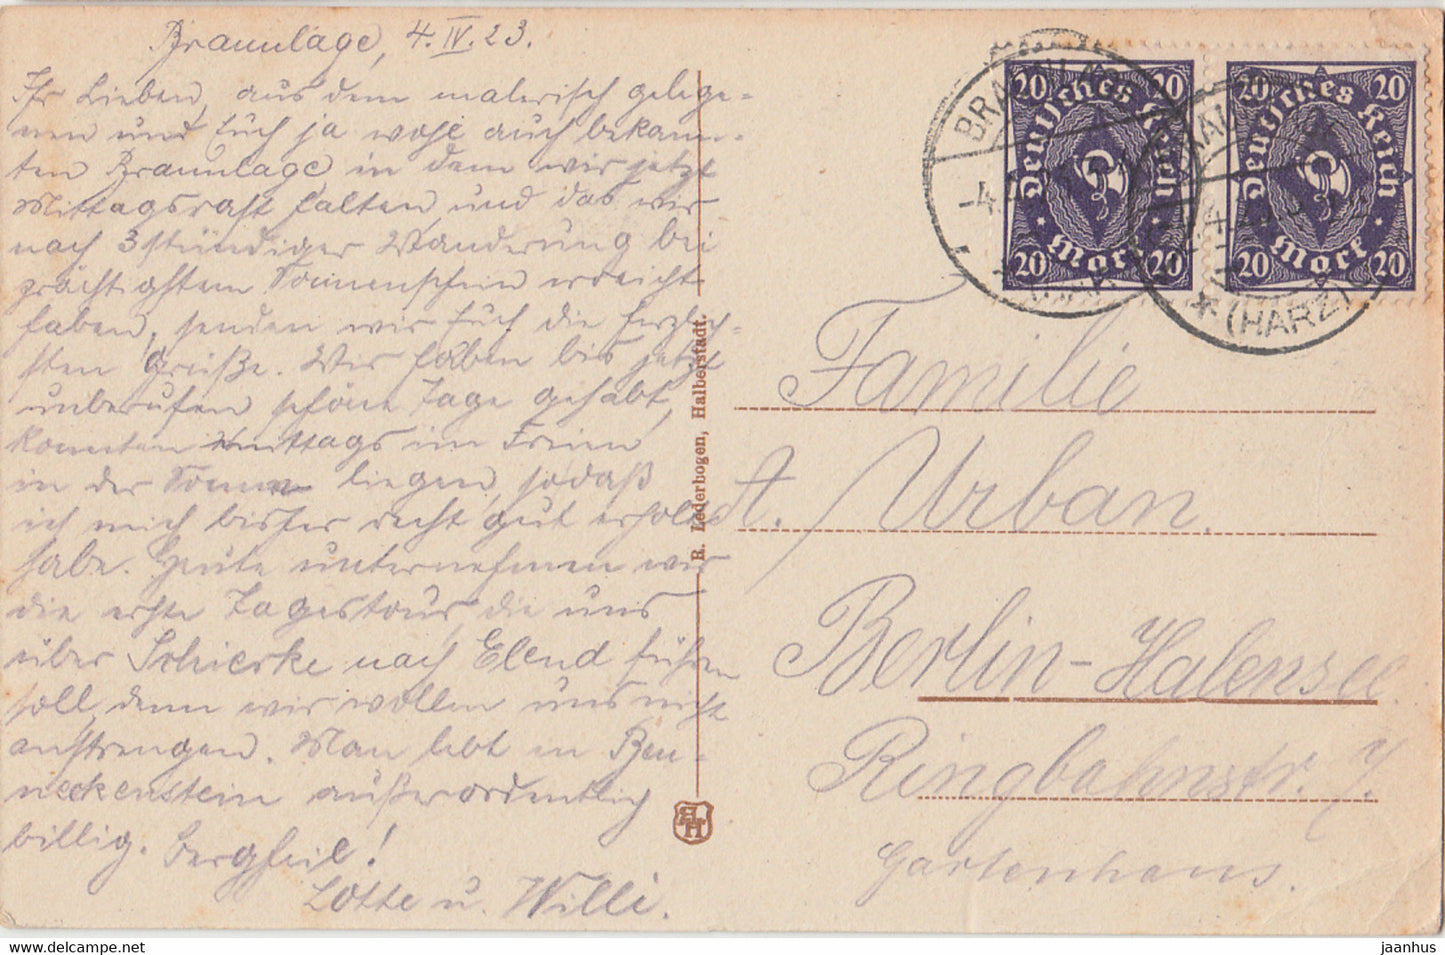 Braunlage, 4.IV.23.
Ihr Lieben, aus dem malerisch gelege-
nen und Euch ja wohl auch bekann-
ten Braunlage in dem wir jetzt
Mittagsrast halten, und das wir
nach 3stündiger Wanderung bei
prächtigstem Sonnenschein erreicht
haben, senden wir Euch die herzlich-
sten Grüße. Wir haben bis jetzt
unberufen schöne Tage gehabt,
konnten mittags im Freien
in der Sonne liegen, sodaß
ich mich bisher recht gut erholt
habe. Heute unternehmen wir
die erste Tagestour, die uns
über Schierke nach Elend führen
soll, denn wir wollen uns nicht
anstrengen. Man lebt in Ben-
neckenstein außerordentlich
billig. Bergheil!
Lotte u. Willi.
R. Lederbogen, Halberstadt.
20 20
Deutsches Reich
Mark
20 20
20 20
Deutsches Reich
Mark
20 20
BRAUNLAGE
* (HARZ)
Familie
A. Urban.
Berlin-Halensee
Ringbahnstr. 7.
Gartenhaus.
jaanhus